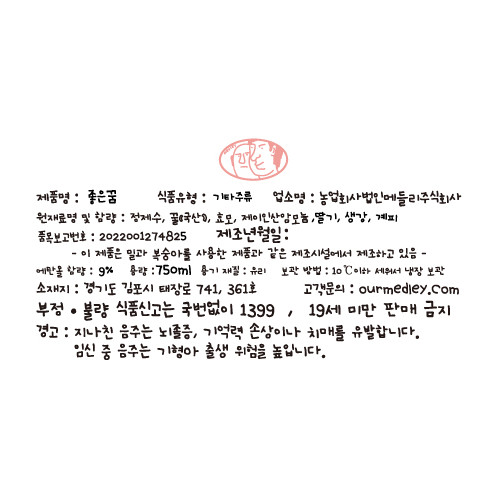 제품명 : 좋은꿈 식품유형 : 기타주류 업소명 : 농업회사법인메들리주식회사
원재료명 및 함량 : 정제수, 꿀(국산), 효모, 제이인산암모늄,딸기, 생강, 계피
품목보고번호 : 2022001274825 제조년월일:
- 이 제품은 밀과 복숭아를 사용한 제품과 같은 제조시설에서 제조하고 있음 -
에탄올 함량 : 9% 용량 : 750ml 용기 재질 : 유리 보관 방법 : 10℃이하 세워서 냉장 보관
소재지 : 경기도 김포시 태장로 741, 361호 고객문의 : ourmedley.com
부정 • 불량 식품신고는 국번없이 1399 , 19세 미만 판매 금지
경고 : 지나친 음주는 뇌졸중, 기억력 손상이나 치매를 유발합니다.
임신 중 음주는 기형아 출생 위험을 높입니다.